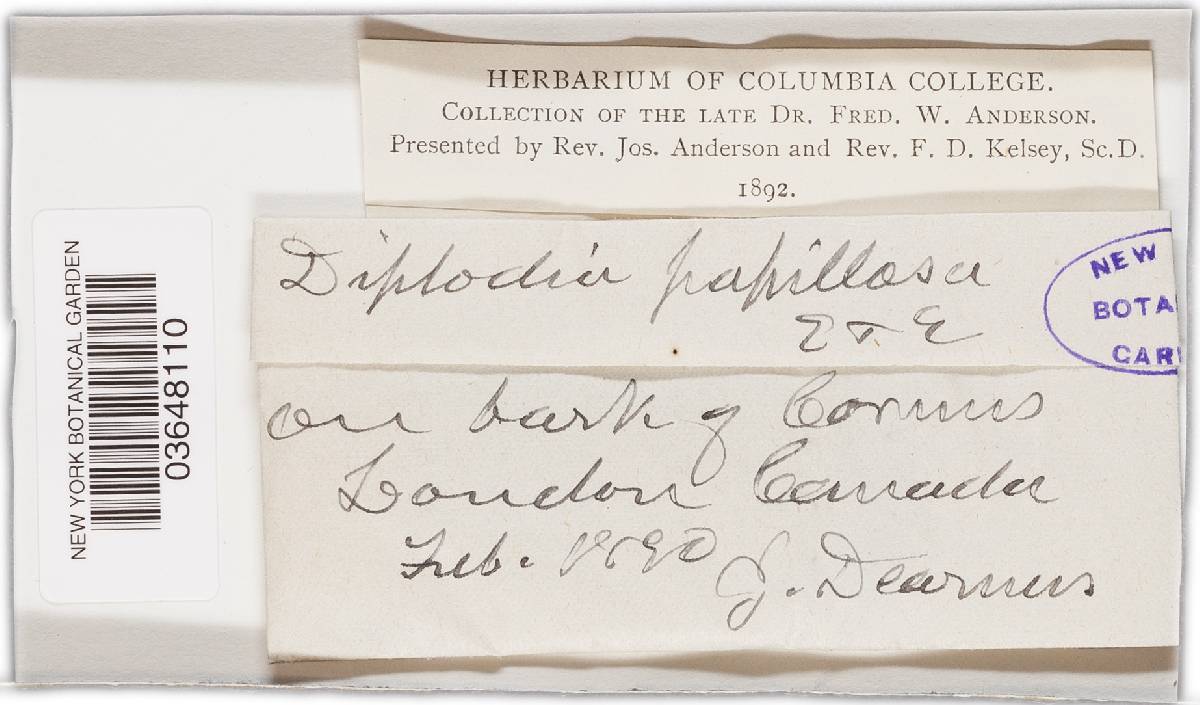 HERBARIUM OF COLUMBIA COLLEGE.
COLLECTION OF THE LATE DR. FRED. W. ANDERSON.
Presented by Rev. Jos. Anderson and Rev. F. D. Kelsey, Sc.D.
1892.
NEW YORK BOTANICAL GARDEN
03648110
Diplodia papillosa
E & E
NEW
BOTA
GAR
on bark of Cornus
London Canada
Feb. 1890
J. Dearness